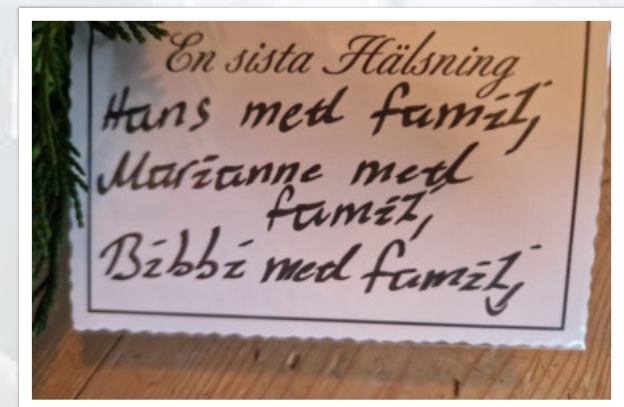 En sista Hälsning
Hans med familj
Marianne med
familj
Bibbi med familj